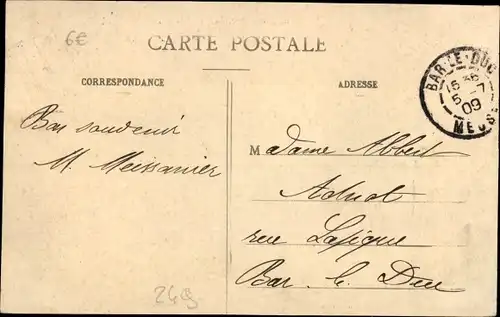 6€
CARTE POSTALE
CORRESPONDANCE
ADRESSE
BAR-LE-DUC
15 35
5 -7
09
MEUSE
Bon souvenir
M. Meissanier
Madame Albert
Adnot
rue Lapique
Bar. le. Duc